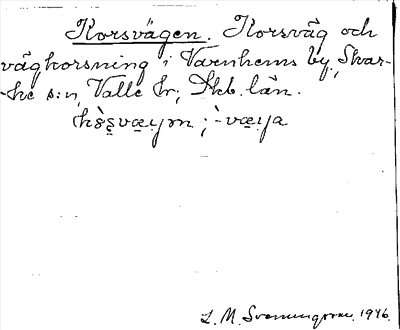 Korsvägen. Korsväg och
vägkorsning i Varnhems by, Skar-
-ke s:n, Valle hr; Skb. län.
L. M. Svenungsson. 1946.